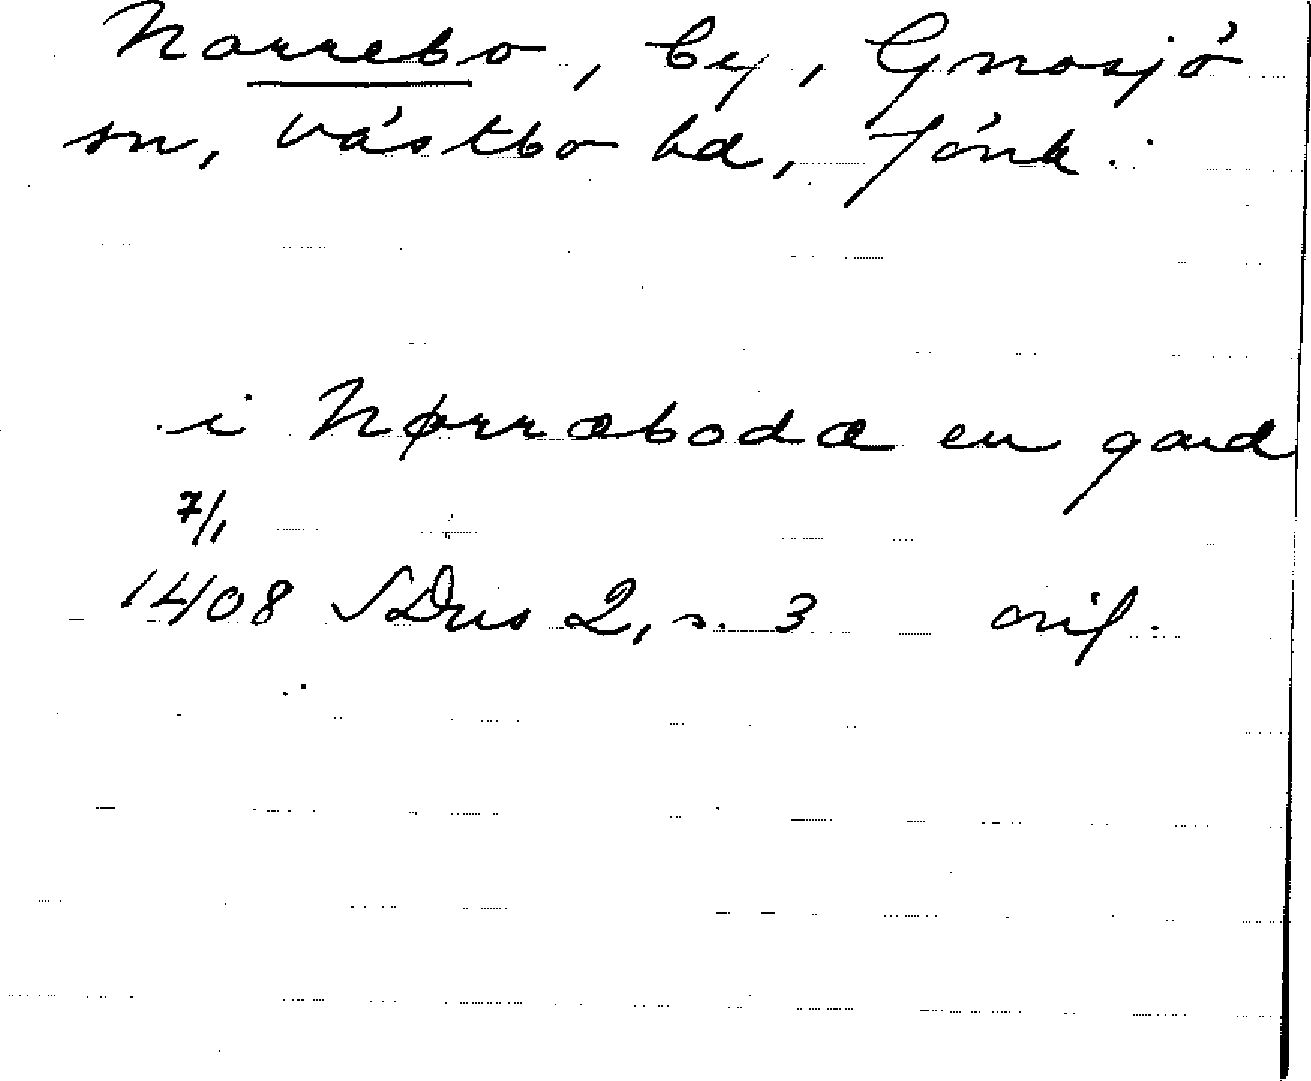 Norrebo, by, Gnosjö
sn, Västbo hd, Jönk.
i Nørræbodæ en gard
7/1
1408 SDns 2, s. 3 orig.